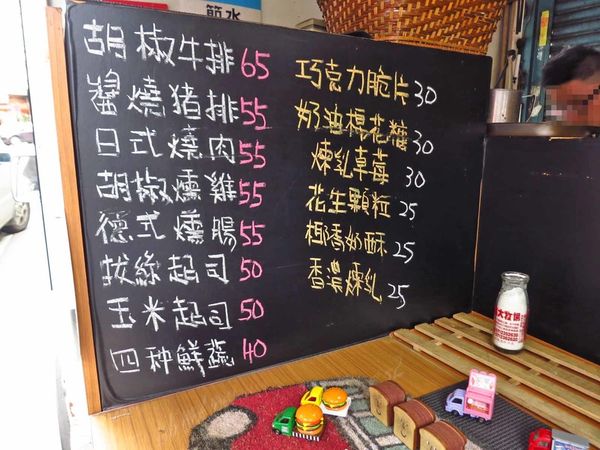 節水
胡椒牛排 65
醬燒猪排 55
日式燒肉 55
胡椒燻雞 55
德式燻腸 55
拔絲起司 50
玉米起司 50
四种鮮蔬 40
巧克力脆片 30
奶油棉花糖 30
煉乳草莓 30
花生顆粒 25
椰香奶酥 25
香濃煉乳 25